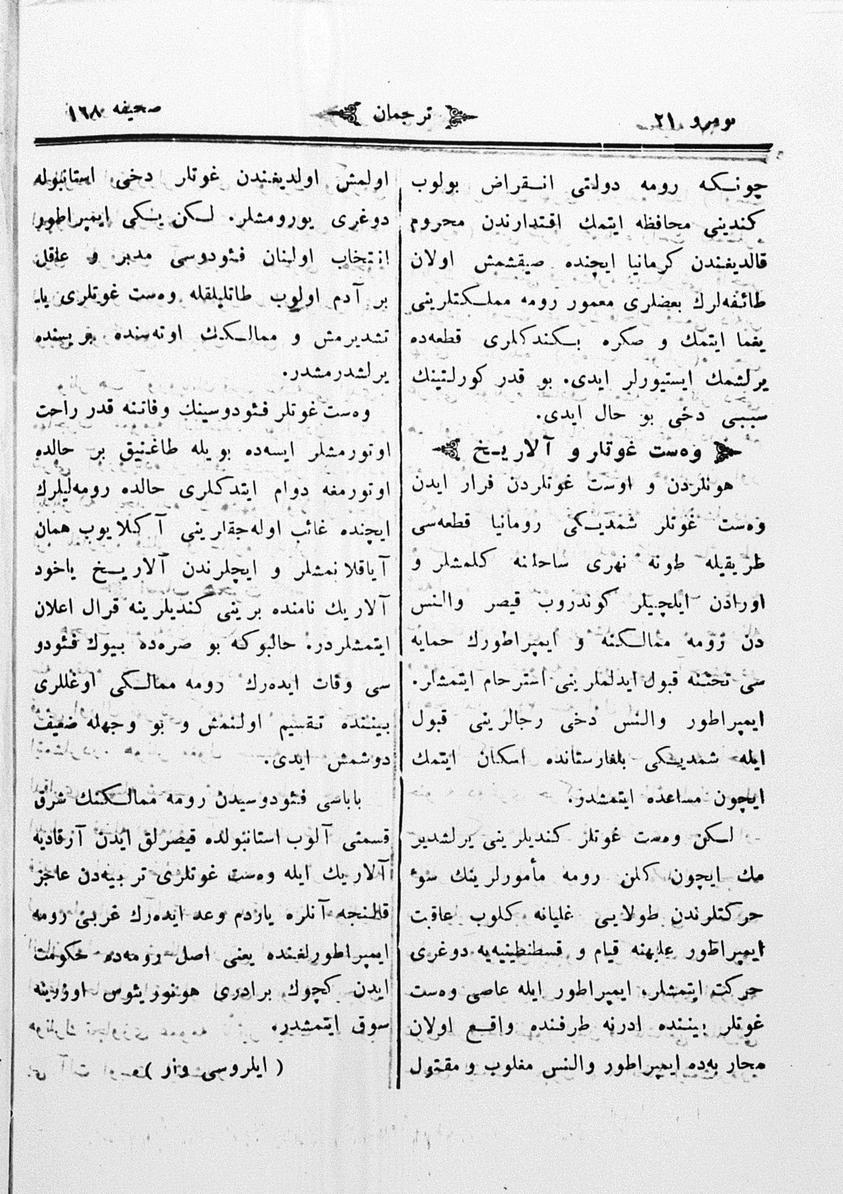 نومرو ٢١
ترجمان
صحیفه ١٦٨
چونـکـه رومه دولتی انـقراض بولوب
کندینی محافظه ایتمك اقتدارندن محروم
قالدیغندن کرمانیا ایچنده صیقشمش اولان
طائفه‌لرك بعضلری معمور رومه مملـکتلرینی
یغما ایتمك و صکره بـکندکلری قطعه‌ده
یرلشمك ایستیورلر ایدی. بو قدر کورلتینك
سببی دخی بو حال ایدی.
وه‌ست غوتلر و آلاریـخ
هونلردن و اوست غوتلردن فرار ایدن
وه‌ست غوتلر شمدیـکی رومانیا قطعه‌سی
طریقیله طونه نهری ساحلنه کلمشلر و
اورادن ایلچیلر کوندروب قیصر والنس
دن رومه ممالـکنه و ایمپراطورك حمایه
سی تحتنه قبول ایدلملرینی استرحام ایتمشلر.
ایمپراطور والنس دخی رجالرینی قبول
ایله شمدیـکی بلغارستانده اسکان ایتمك
ایچون مساعده ایتمشدر.
لـکن وه‌ست غوتلر کندیلرینی یرلشدیر
مك ایچون کلن رومه مأمورلرینك سوء
حرکتلرندن طولایی غلیانه کلوب عاقبت
ایمپراطور علیهنه قیام و قسطنطینیه‌یه دوغری
حرکت ایتمشلر، ایمپراطور ایله عاصی وه‌ست
غوتلر بیننده ادرنه طرفنده واقـع اولان
محاربه‌ده ایمپراطور والنس مغلوب و مقتول
اولمش اولدیغندن غوتلر دخی استانبوله
دوغری یورومشلر. لـکن یـنکی ایمپراطور
انتخاب اولنان فئودوسی مدبر و عاقل
بر آدم اولوب طاتلیلقله وه‌ست غوتلری یا
تشدیرمش و ممالـکك اوته‌سنده بریسنده
یرلشدرمشدر.
وه‌ست غوتلر فئودوسینك وفاتنه قدر راحت
اوتورمشلر ایسه‌ده بویله طاغنیق بر حالده
اوتورمغه دوام ایتدکلری حالده رومه‌لیلرك
ایچنده غائب اوله‌جقلرینی آکلایوب همان
آیاقلانمشلر و ایچلرندن آلاریـخ یاخود
آلاریك نامنده برینی کندیلرینه قرال اعلان
ایتمشلردر. حالبوکه بو صره‌ده بیوك فئودو
سی وفات ایده‌رك رومه ممالـکی اوغللری
بیننده تقسیم اولنمش و بو وجهله ضعیف
دوشمش ایدی.
باباسی فئودوسیدن رومه ممالـکنك شرق
قسمتی آلوب استانبولده قیصرلق ایدن آرقادیه
آلاریك ایله وه‌ست غوتلری تربیه‌دن عاجز
قالنجه آنلره یاردم وعد ایده‌رك غربی رومه
ایمپراطورلغنده یعنی اصل رومه‌ده حکومت
ایدن کچوك برادری هونوریئوس اوزرینه
سوق ایتمشدر.
( ایلروسی وار )